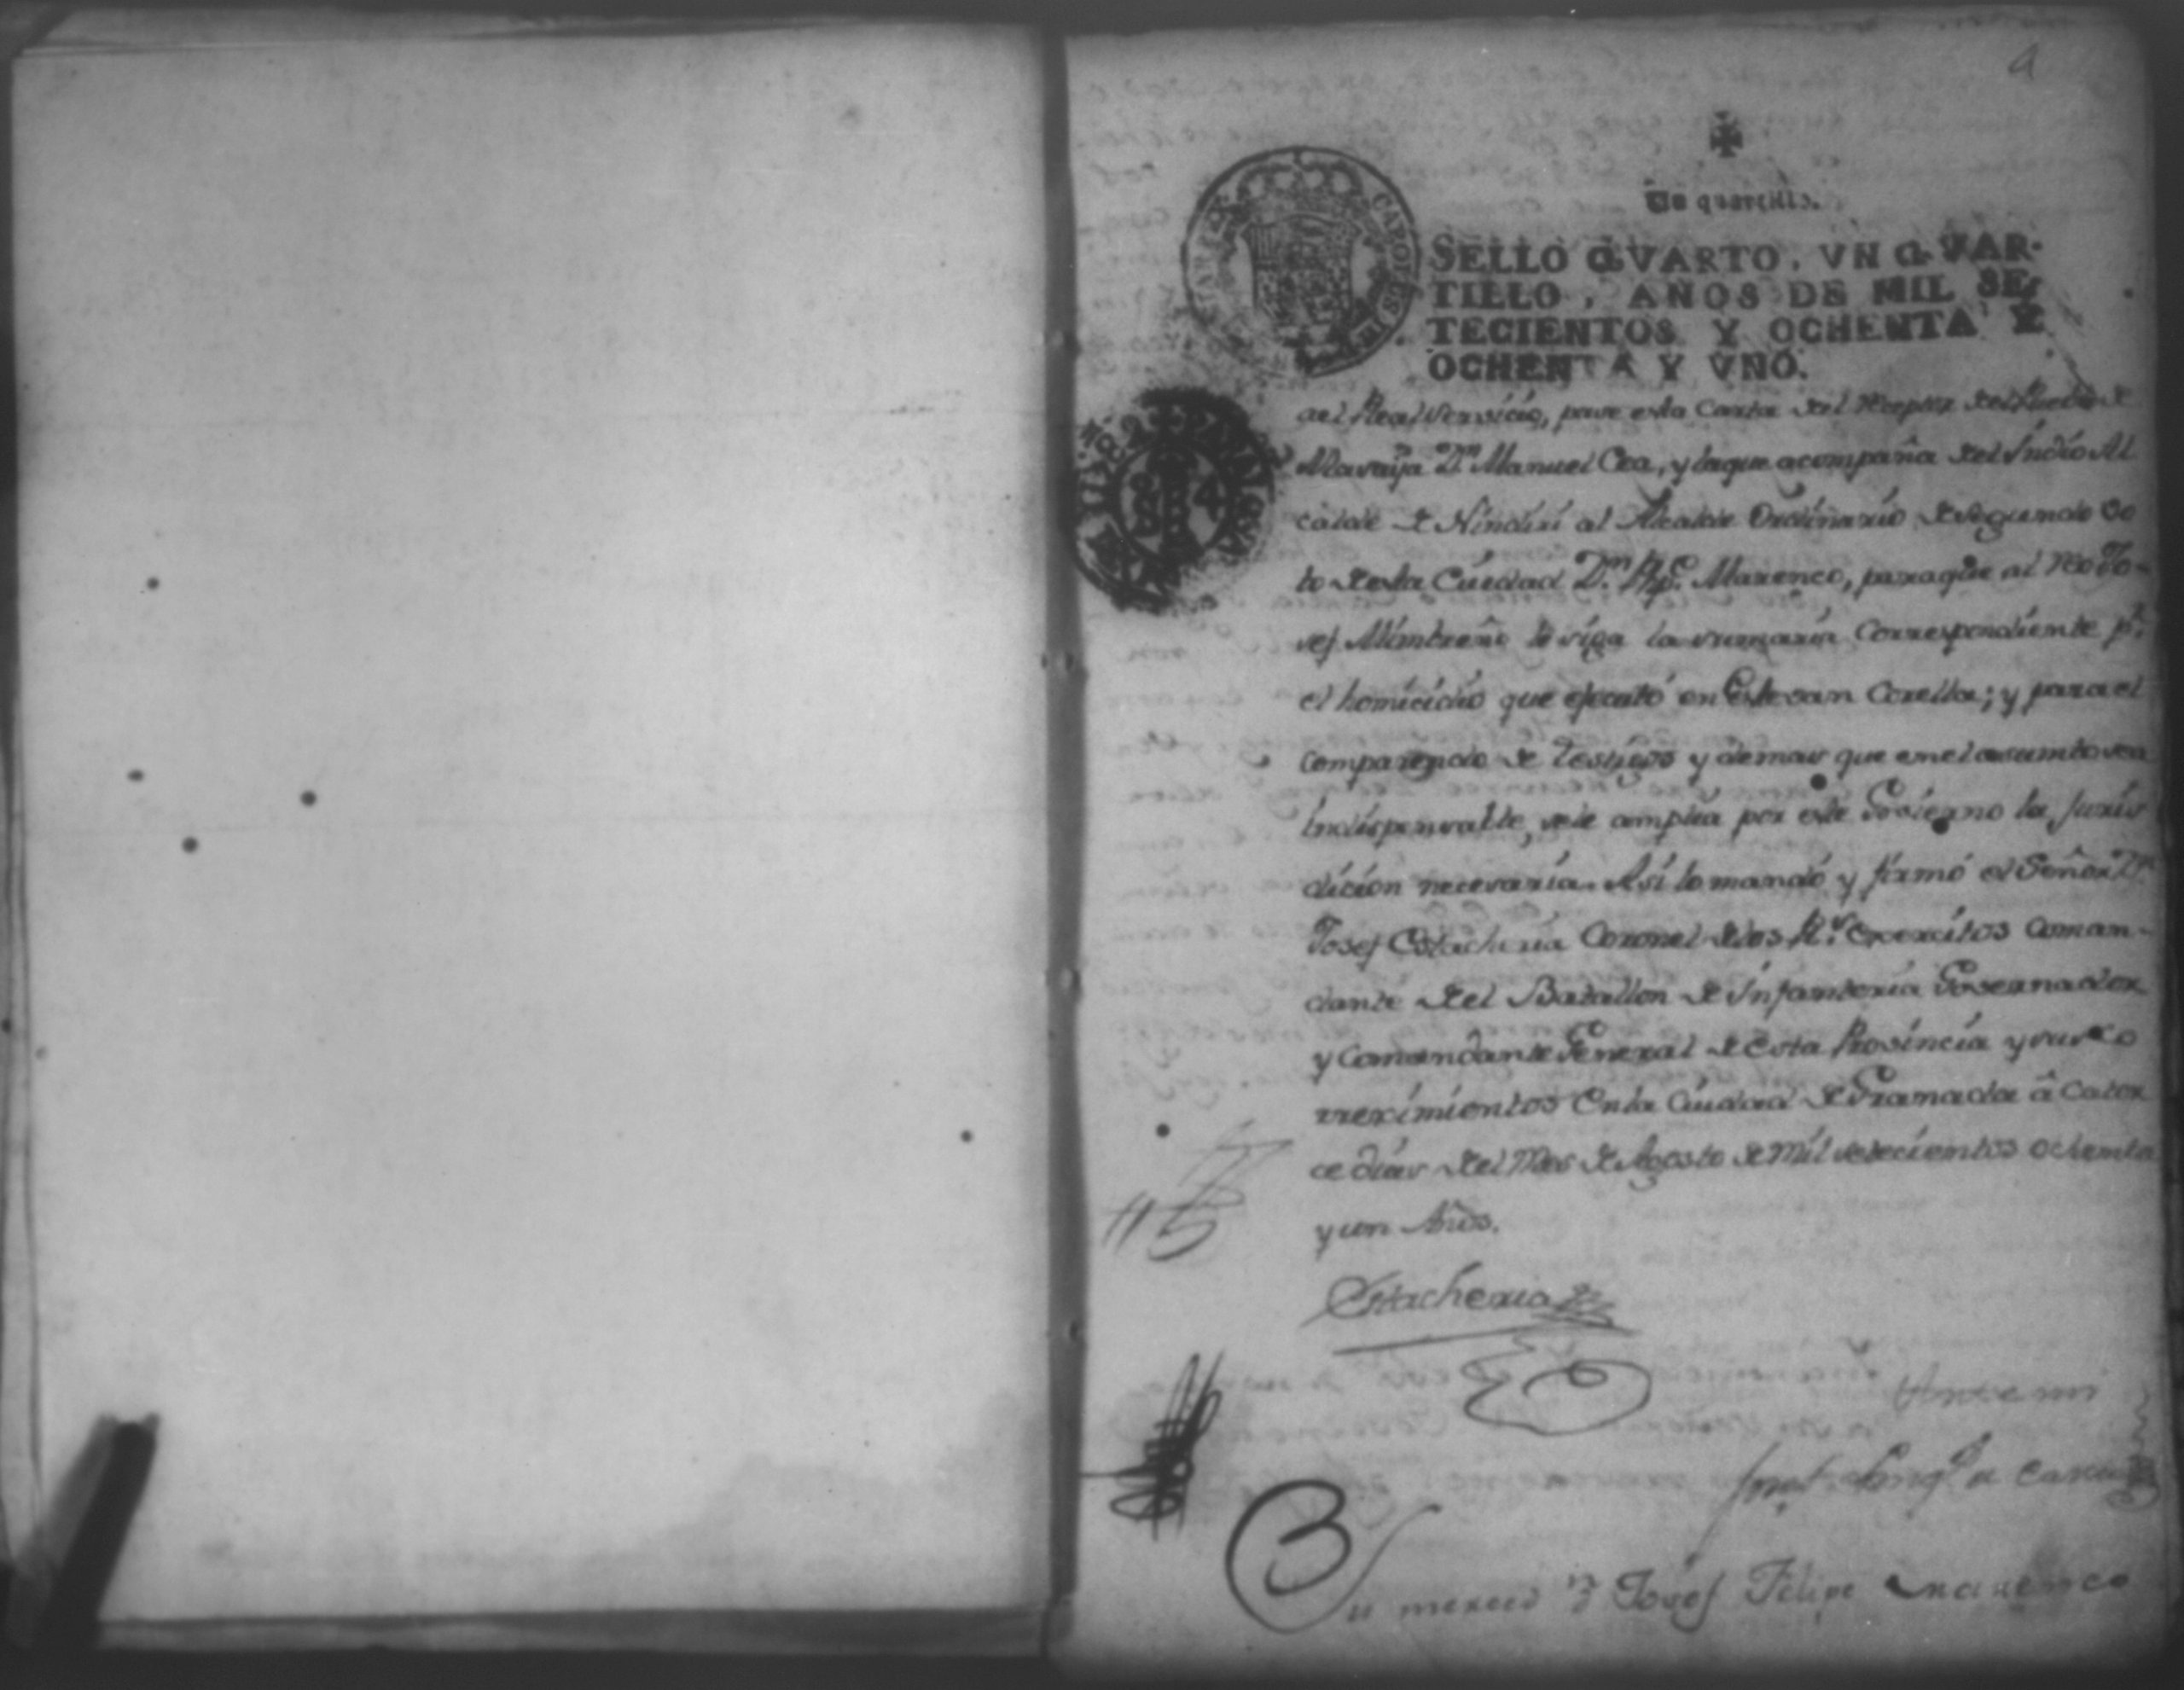 4
Un quartillo.
SELLO QVARTO, VN QVAR-
TILLO, AÑOS DE MIL SE-
TECIENTOS Y OCHENTA Y
OCHENTA Y VNO.
CAROLUS III
1782 Y 1783
ael Real Servicio, pase esta Carta del del Pueblo de
Masaya Dn Manuel Cea, y laque acompaña del Indio Al
calde de Nindiri al Alcalde Ordinario de segundo Vo
to de esta Ciudad Dn. Marenco, paraque al Reo Jo-
sef Mimbreño le siga la sumaria Correspondiente pr.
el homicidio que ejecutó en Estevan Corella; y para el
comparendo de testigos y demas que en el asumto sea
indispensable, sele amplia por este Govierno la Juris
dicion necesaria. Asi lo mandó y firmó el Señor Dn
Josef Estacheria Coronel delos Rs. Exercitos Coman-
dante del Batallon de Infanteria Governador
y Comandante General de Esta Provincia y sus Co
rrexîmientos En la Ciudad de Granada â Cator
ce dias del Mes de Agosto de Mil setecientos ochenta
y un Años.
Estacheria
Ante mi
Su merced Dn Josef Felipe Marenco